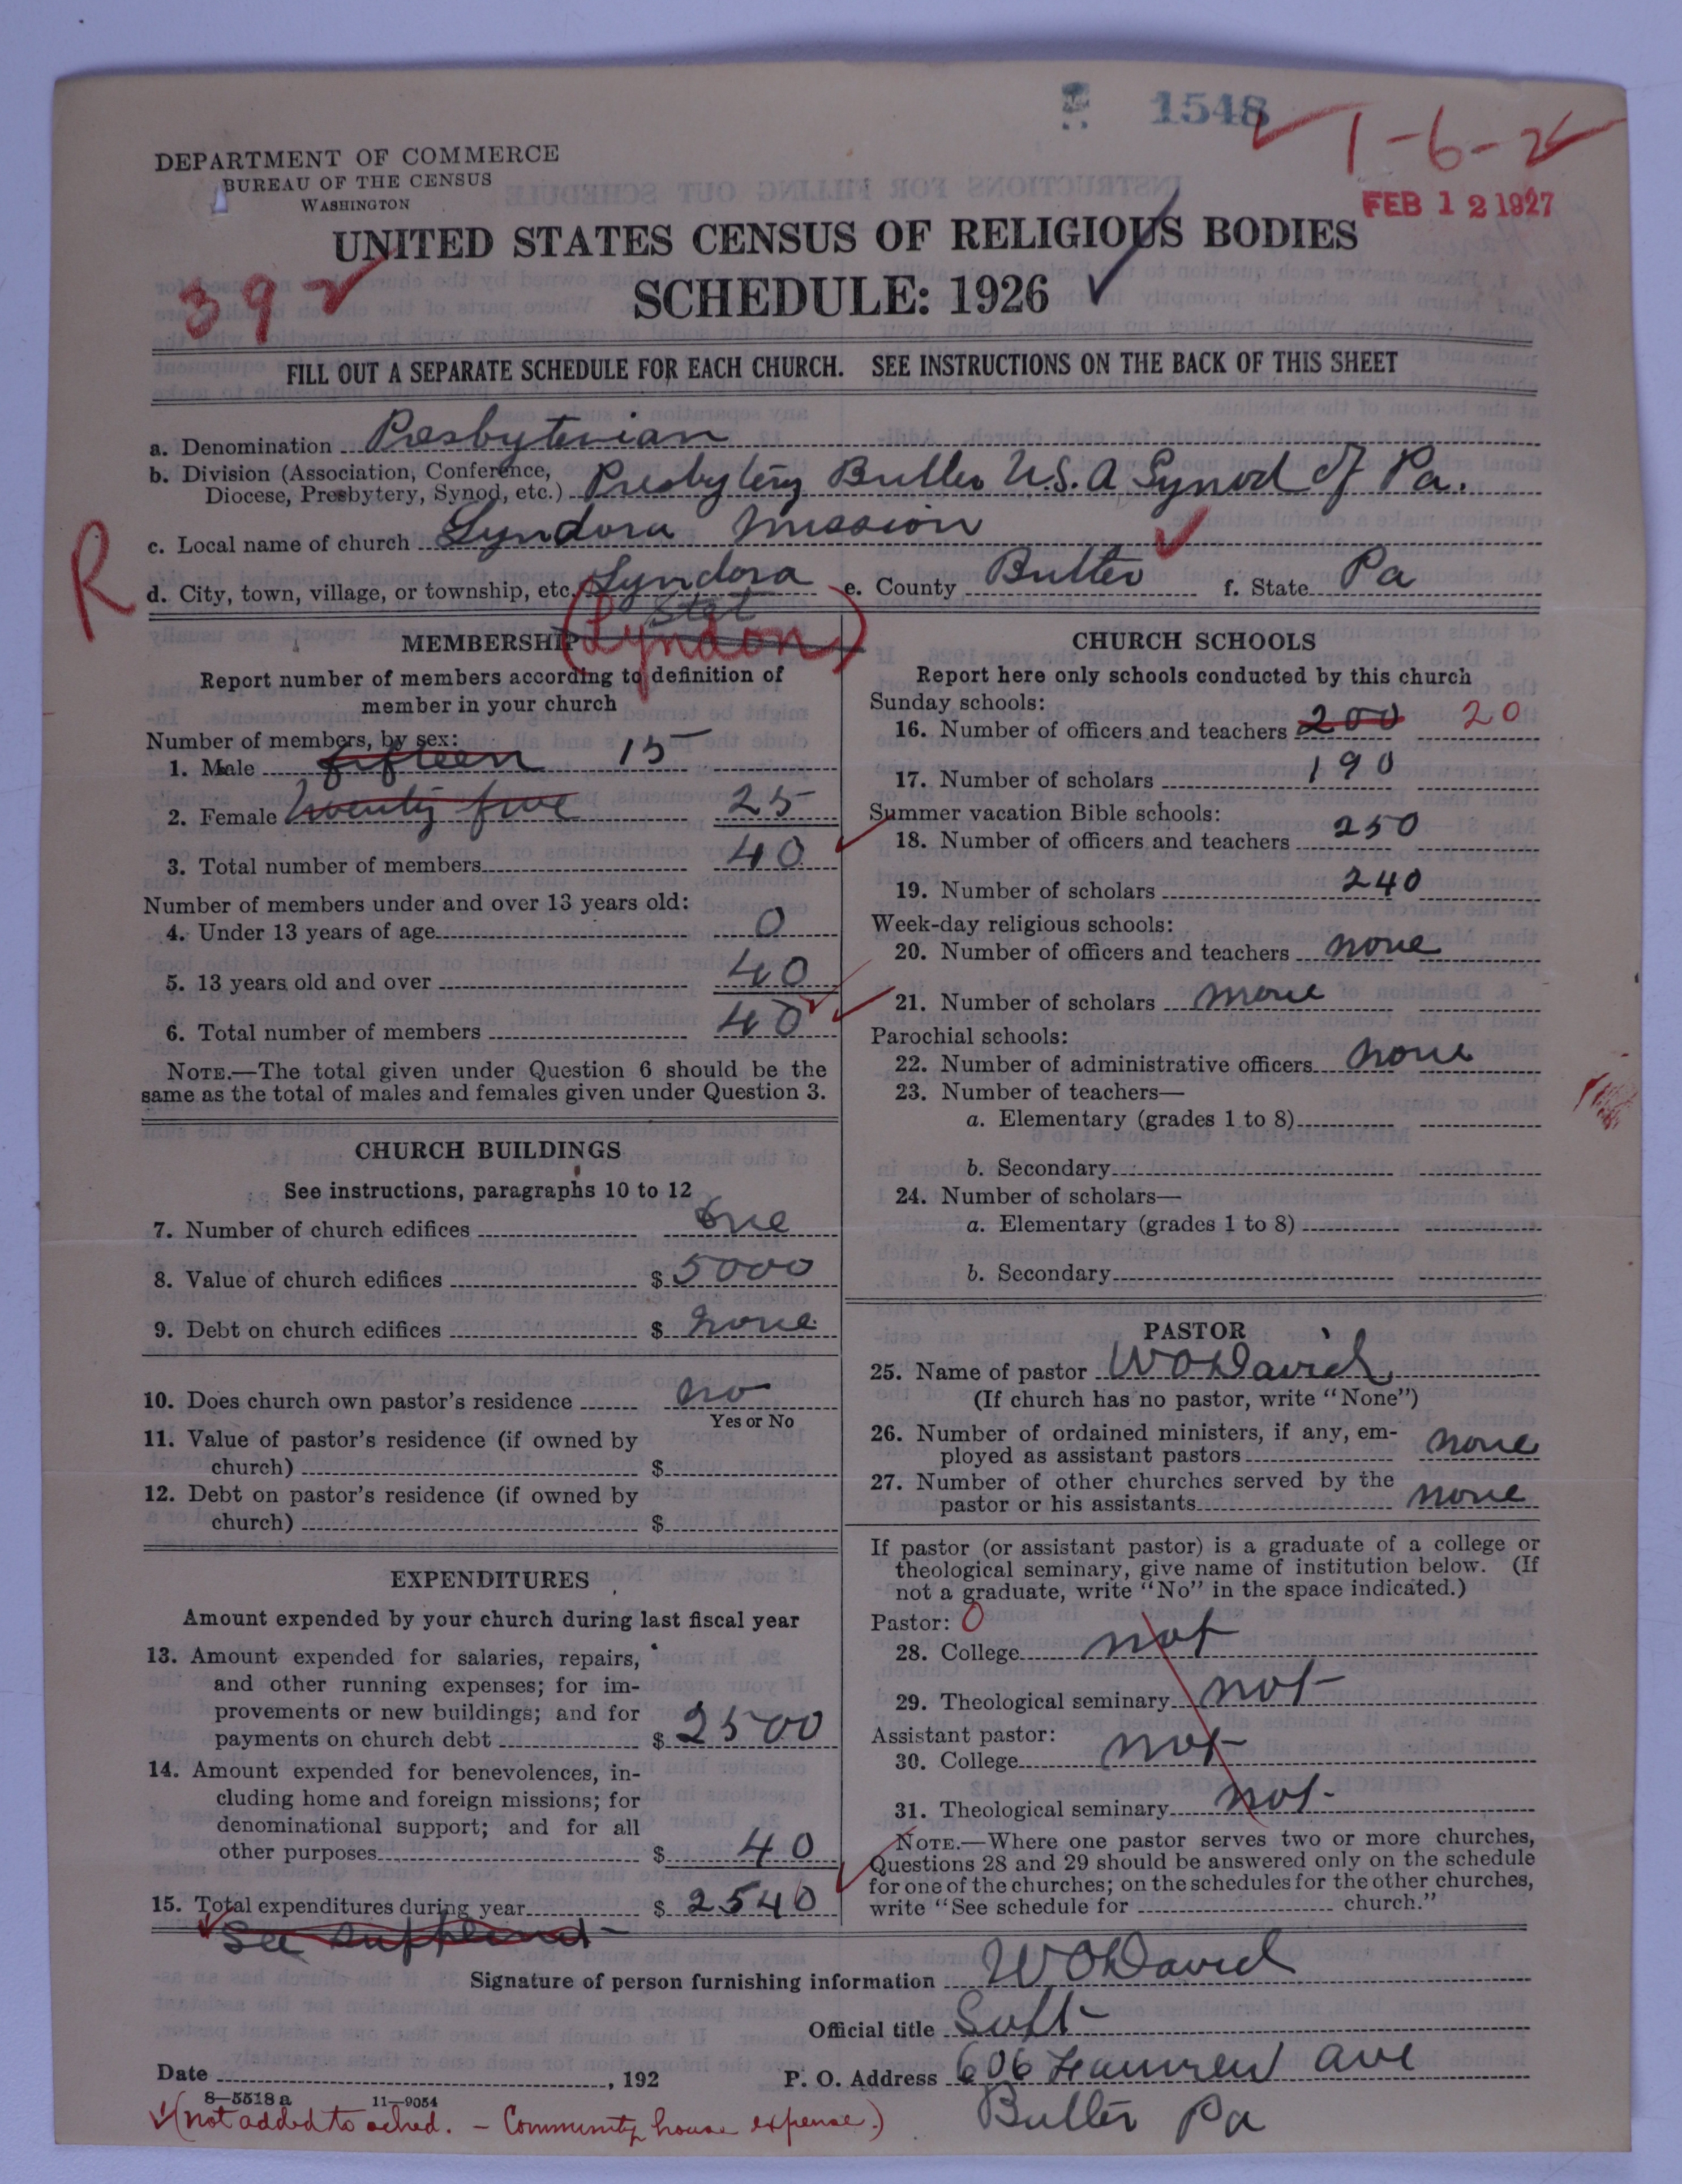 1548
1-6-2
DEPARTMENT OF COMMERCE
BUREAU OF THE CENSUS
WASHINGTON
FEB 12 1927
UNITED STATES CENSUS OF RELIGIOUS BODIES
SCHEDULE: 1926
392
FILL OUT A SEPARATE SCHEDULE FOR EACH CHURCH. SEE INSTRUCTIONS ON THE BACK OF THIS SHEET
a. Denomination Presbyterian
b. Division (Association, Conference,
Diocese, Presbytery, Synod, etc.) Presbytery Butler U.S.A Synod of Pa.
c. Local name of church Lyndora Mission
R
d. City, town, village, or township, etc. Lyndora e. County Butler f. State Pa
Stet
(Lyndon)
MEMBERSHIP
Report number of members according to definition of
member in your church
Number of members, by sex:
1. Male fifteen 15
2. Female twenty five 25
3. Total number of members 40
Number of members under and over 13 years old:
4. Under 13 years of age 0
5. 13 years old and over 40
6. Total number of members 40
NOTE.—The total given under Question 6 should be the
same as the total of males and females given under Question 3.
CHURCH BUILDINGS
See instructions, paragraphs 10 to 12
7. Number of church edifices one
8. Value of church edifices $ 5000
9. Debt on church edifices $ none
10. Does church own pastor's residence no
Yes or No
11. Value of pastor's residence (if owned by
church) $
12. Debt on pastor's residence (if owned by
church) $
EXPENDITURES
Amount expended by your church during last fiscal year
13. Amount expended for salaries, repairs,
and other running expenses; for im-
provements or new buildings; and for
payments on church debt $ 2500
14. Amount expended for benevolences, in-
cluding home and foreign missions; for
denominational support; and for all
other purposes $ 40
15. Total expenditures during year $ 2540
See
CHURCH SCHOOLS
Report here only schools conducted by this church
Sunday schools:
16. Number of officers and teachers 200 20
17. Number of scholars 190
Summer vacation Bible schools:
18. Number of officers and teachers 250
19. Number of scholars 240
Week-day religious schools:
20. Number of officers and teachers none
21. Number of scholars none
Parochial schools:
22. Number of administrative officers none
23. Number of teachers—
a. Elementary (grades 1 to 8)
b. Secondary
24. Number of scholars—
a. Elementary (grades 1 to 8)
b. Secondary
PASTOR
25. Name of pastor W O David
(If church has no pastor, write "None")
26. Number of ordained ministers, if any, em-
ployed as assistant pastors none
27. Number of other churches served by the
pastor or his assistants none
If pastor (or assistant pastor) is a graduate of a college or
theological seminary, give name of institution below. (If
not a graduate, write "No" in the space indicated.)
Pastor: 0
28. College not
29. Theological seminary not
Assistant pastor:
30. College not
31. Theological seminary not.
NOTE.—Where one pastor serves two or more churches,
Questions 28 and 29 should be answered only on the schedule
for one of the churches; on the schedules for the other churches,
write "See schedule for church."
Signature of person furnishing information W O David
Official title Supt
Date , 192
P. O. Address 606 ave
Butler Pa
8—5518 a 11—9054
(not added to sched. - Community house expense.)